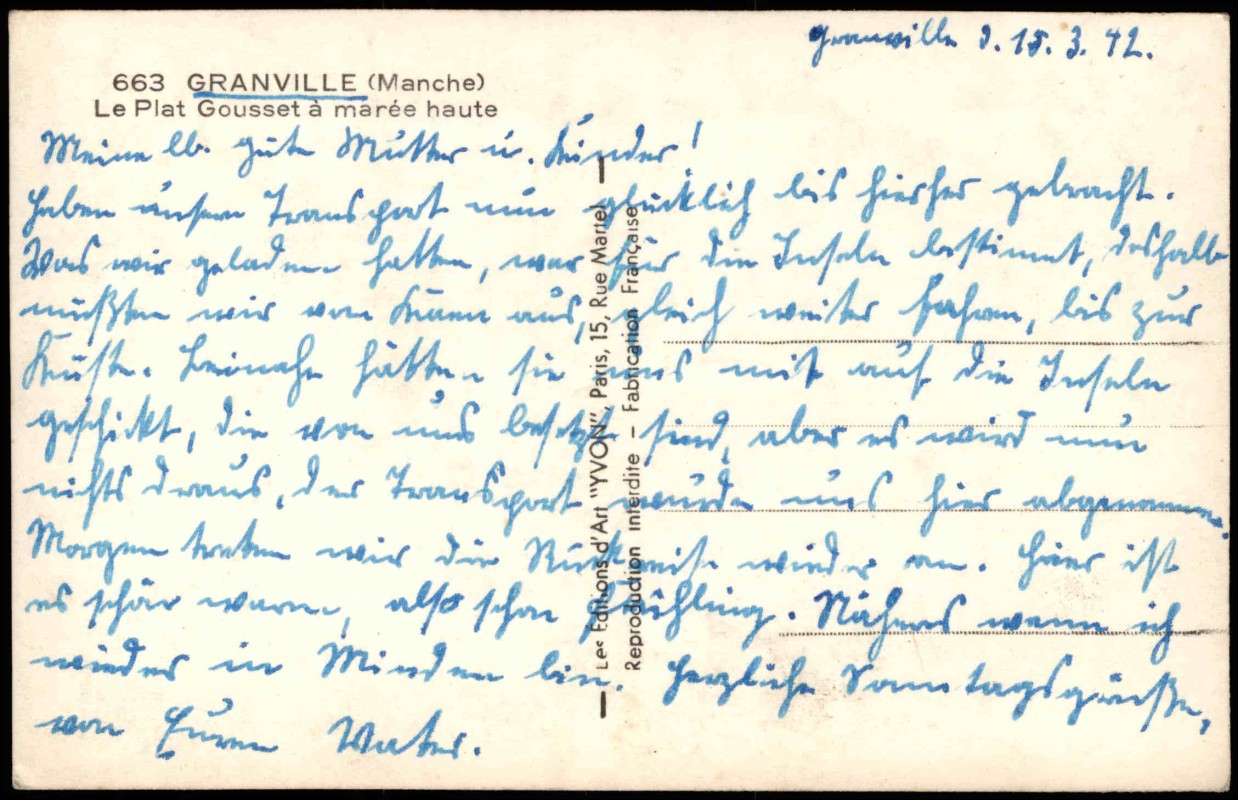 Granville d. 15. 3. 42.
663 GRANVILLE (Manche)
Le Plat Gousset à marée haute
Meine lb. gute Mutter u. Kinder!
Haben unsern Transport nun glücklich bis hierher gebracht.
Was wir geladen hatten, war für die Inseln bestimmt, deshalb
mußten wir von Caen aus, gleich weiter fahren, bis zur
Küste. Beinahe hätten sie uns mit auf die Inseln
geschickt, die von uns besetzt sind, aber es wird nun
nichts draus, der Transport wurde uns hier abgenommen.
Morgen treten wir die Rückreise wieder an. Hier ist
es schön warm, also schon Frühling. Näheres wenn ich
wieder in Minden bin. Herzliche Sonntagsgrüße,
von Euren Vater.
Les Éditions d'Art "YVON", Paris, 15, Rue Martel
Reproduction interdite – Fabrication Française